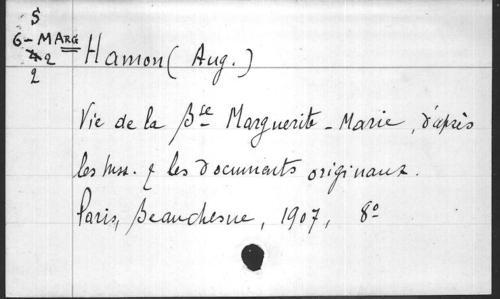 S
6-MARG
42
2
Hamon (Aug.)
Vie de la Bse Marguerite-Marie, d'après
les mss. & les documents originaux.
Paris, Beauchesne, 1907, 8º